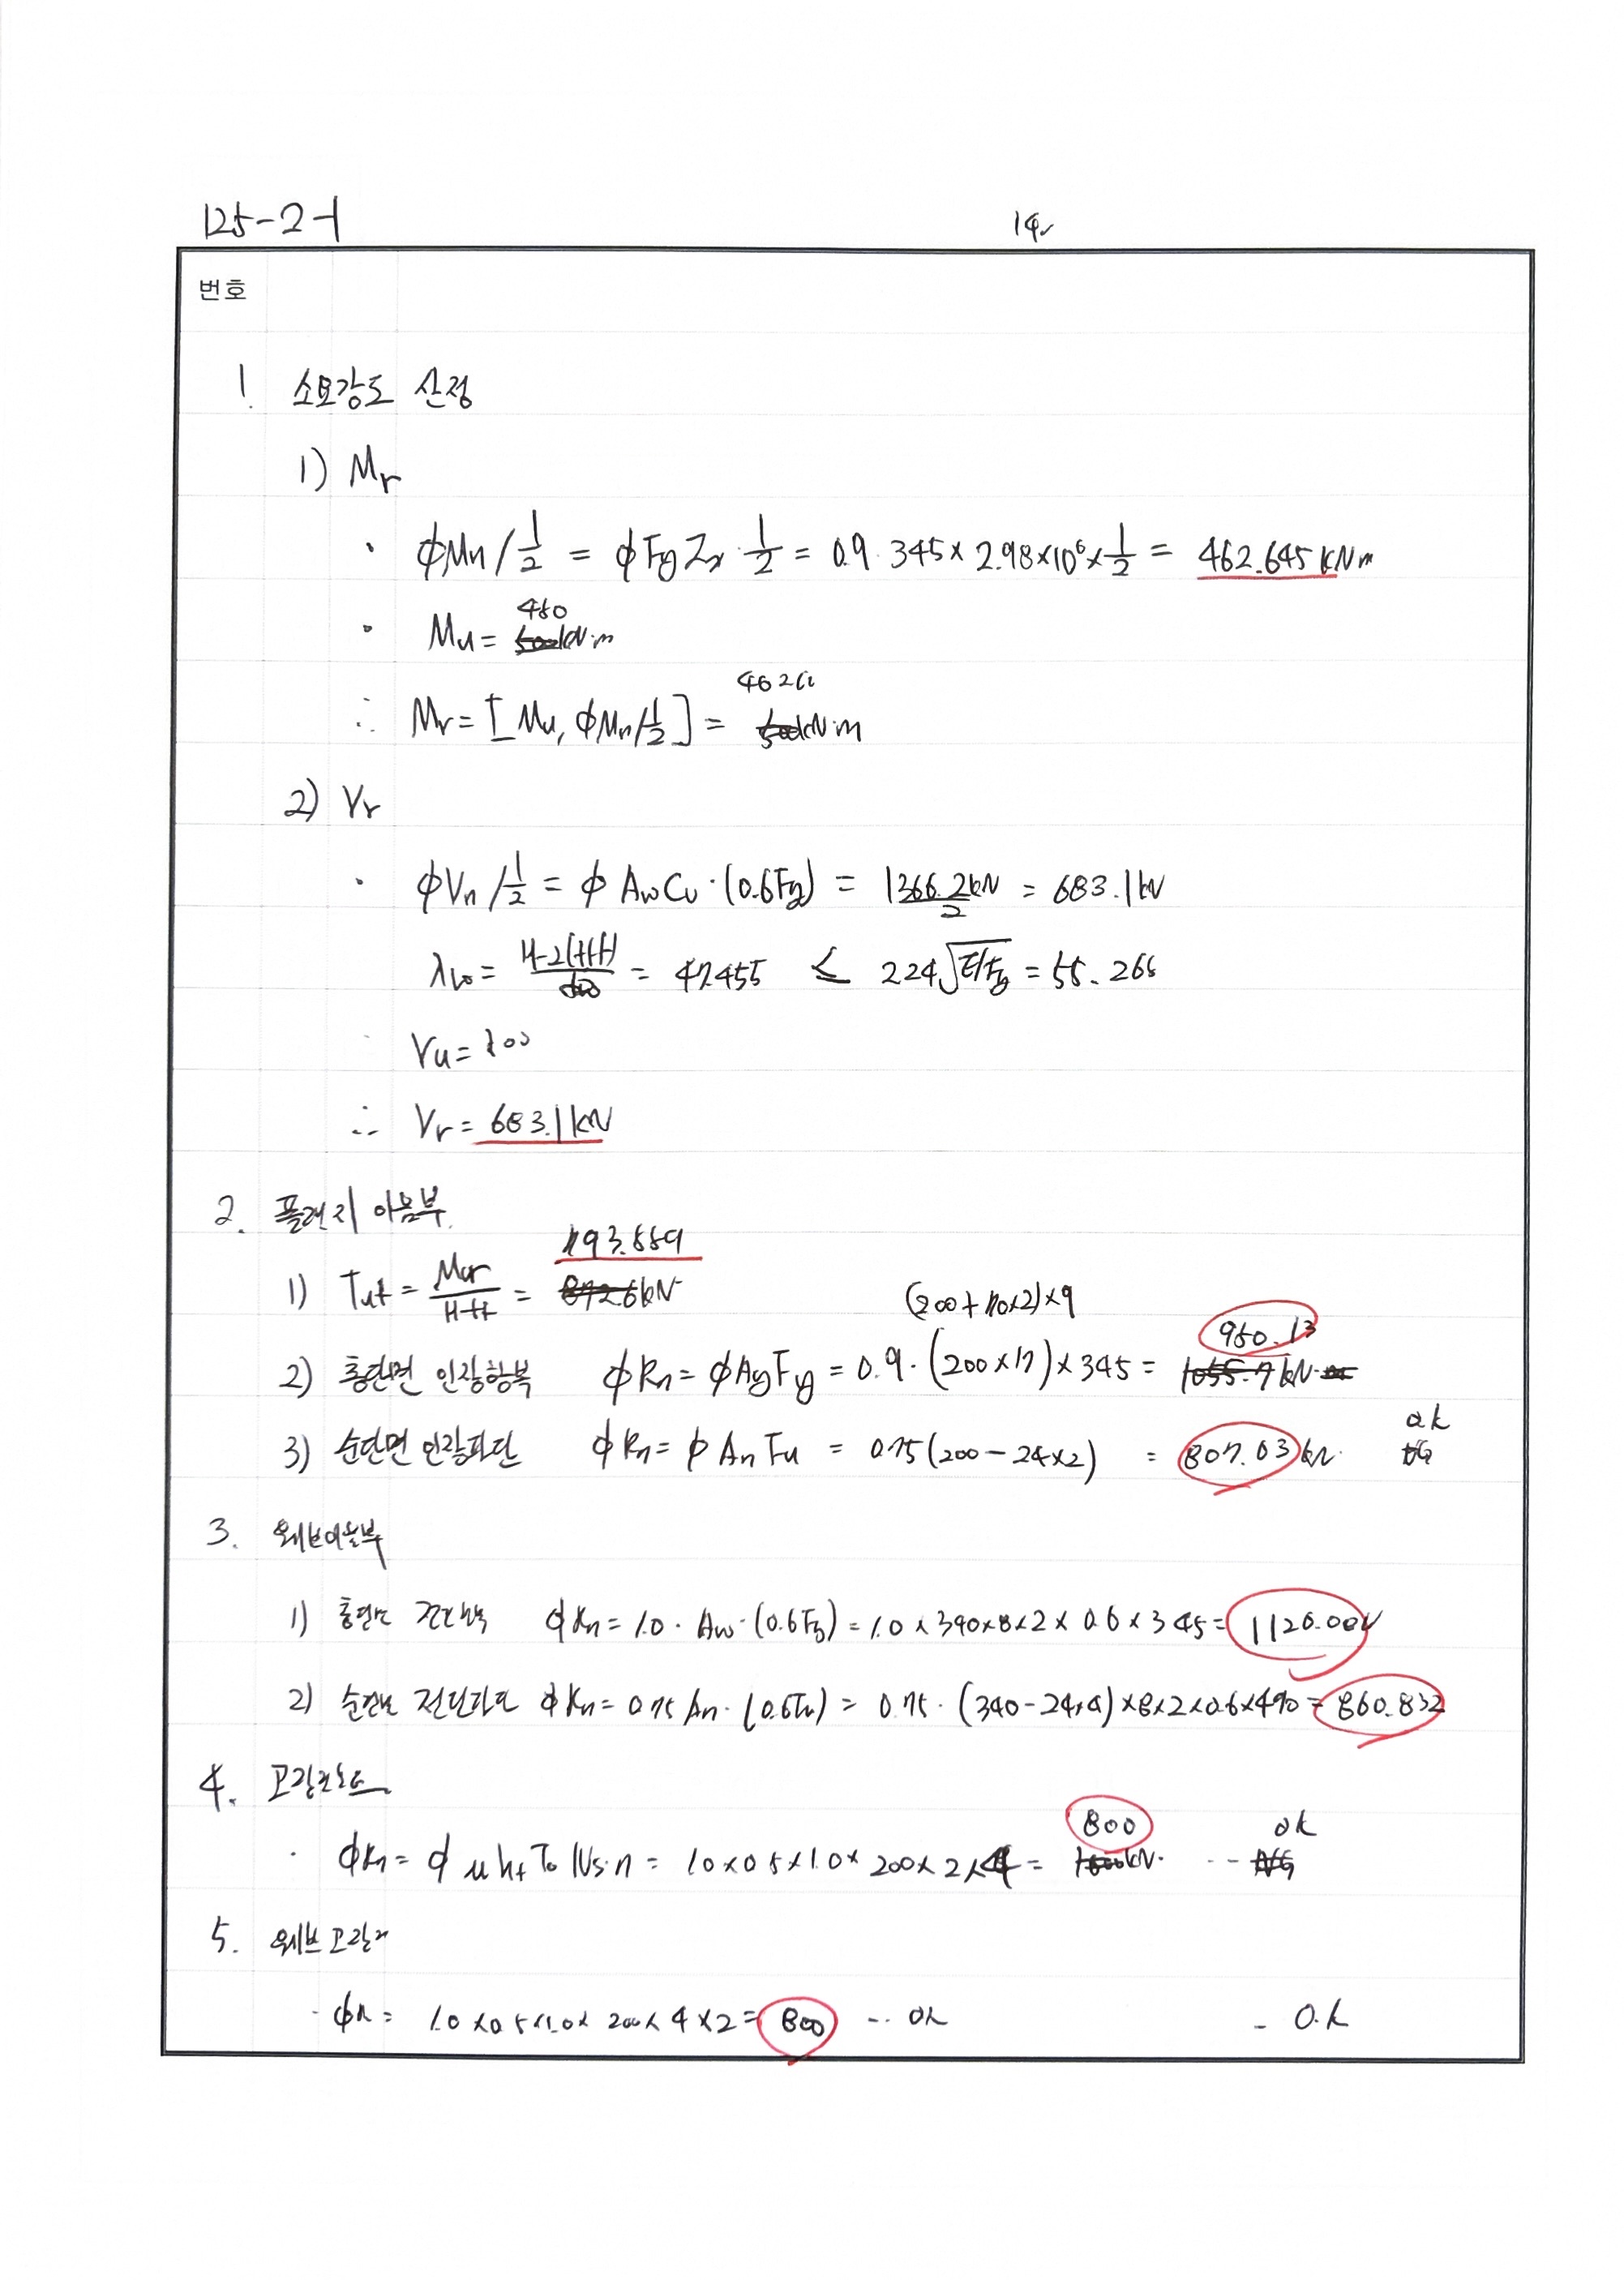 125-2-1
14
번호
1. 소요강도 산정
1) Mr
· ϕMn/½ = ϕFyZx·½ = 0.9·345×2.98×10⁶×½ = 462.645kNm
480
· Mu= kN·m
462.6
∴ Mr = [Mu, ϕMn/½] = kN·m
2) Vr
· ϕVn/½ = ϕAwCv·(0.6Fy) = 1366.2kN/2 = 683.1kN
λw = = 47.455 ≤ 2.24√E/Fy = 55.266
Vu=
∴ Vr = 683.1kN
2. 플랜지 이음부.
793.889
1) Tuf = Mur/H-tf = 872.6kN
(200+70×2)×9
950.13
2) 총단면 인장항복 ϕRn = ϕAgFy = 0.9·(200×17)×345 = 1055.7kN
ok
3) 순단면 인장파단 ϕRn = ϕAnFu = 0.75(200-24×2) = 807.03kN. NG
3. 웨브이음부
1) 총단면 전단항복 ϕRn = 1.0·Aw·(0.6Fy) = 1.0×340×8×2×0.6×345 = 1126.00kN
2) 순단면 전단파단 ϕRn = 0.75An·(0.6Fu) = 0.75·(340-24×4)×8×2×0.6×490 = 860.832
4. 고장력볼트
800
ok
· ϕRn = ϕμhfToNs·n = 1.0×0.5×1.0×200×2×4 = kN. -- NG
5. 웨브 고장
- ϕRn = 1.0×0.5×1.0×200×4×2 = 800 -- ok - O.k